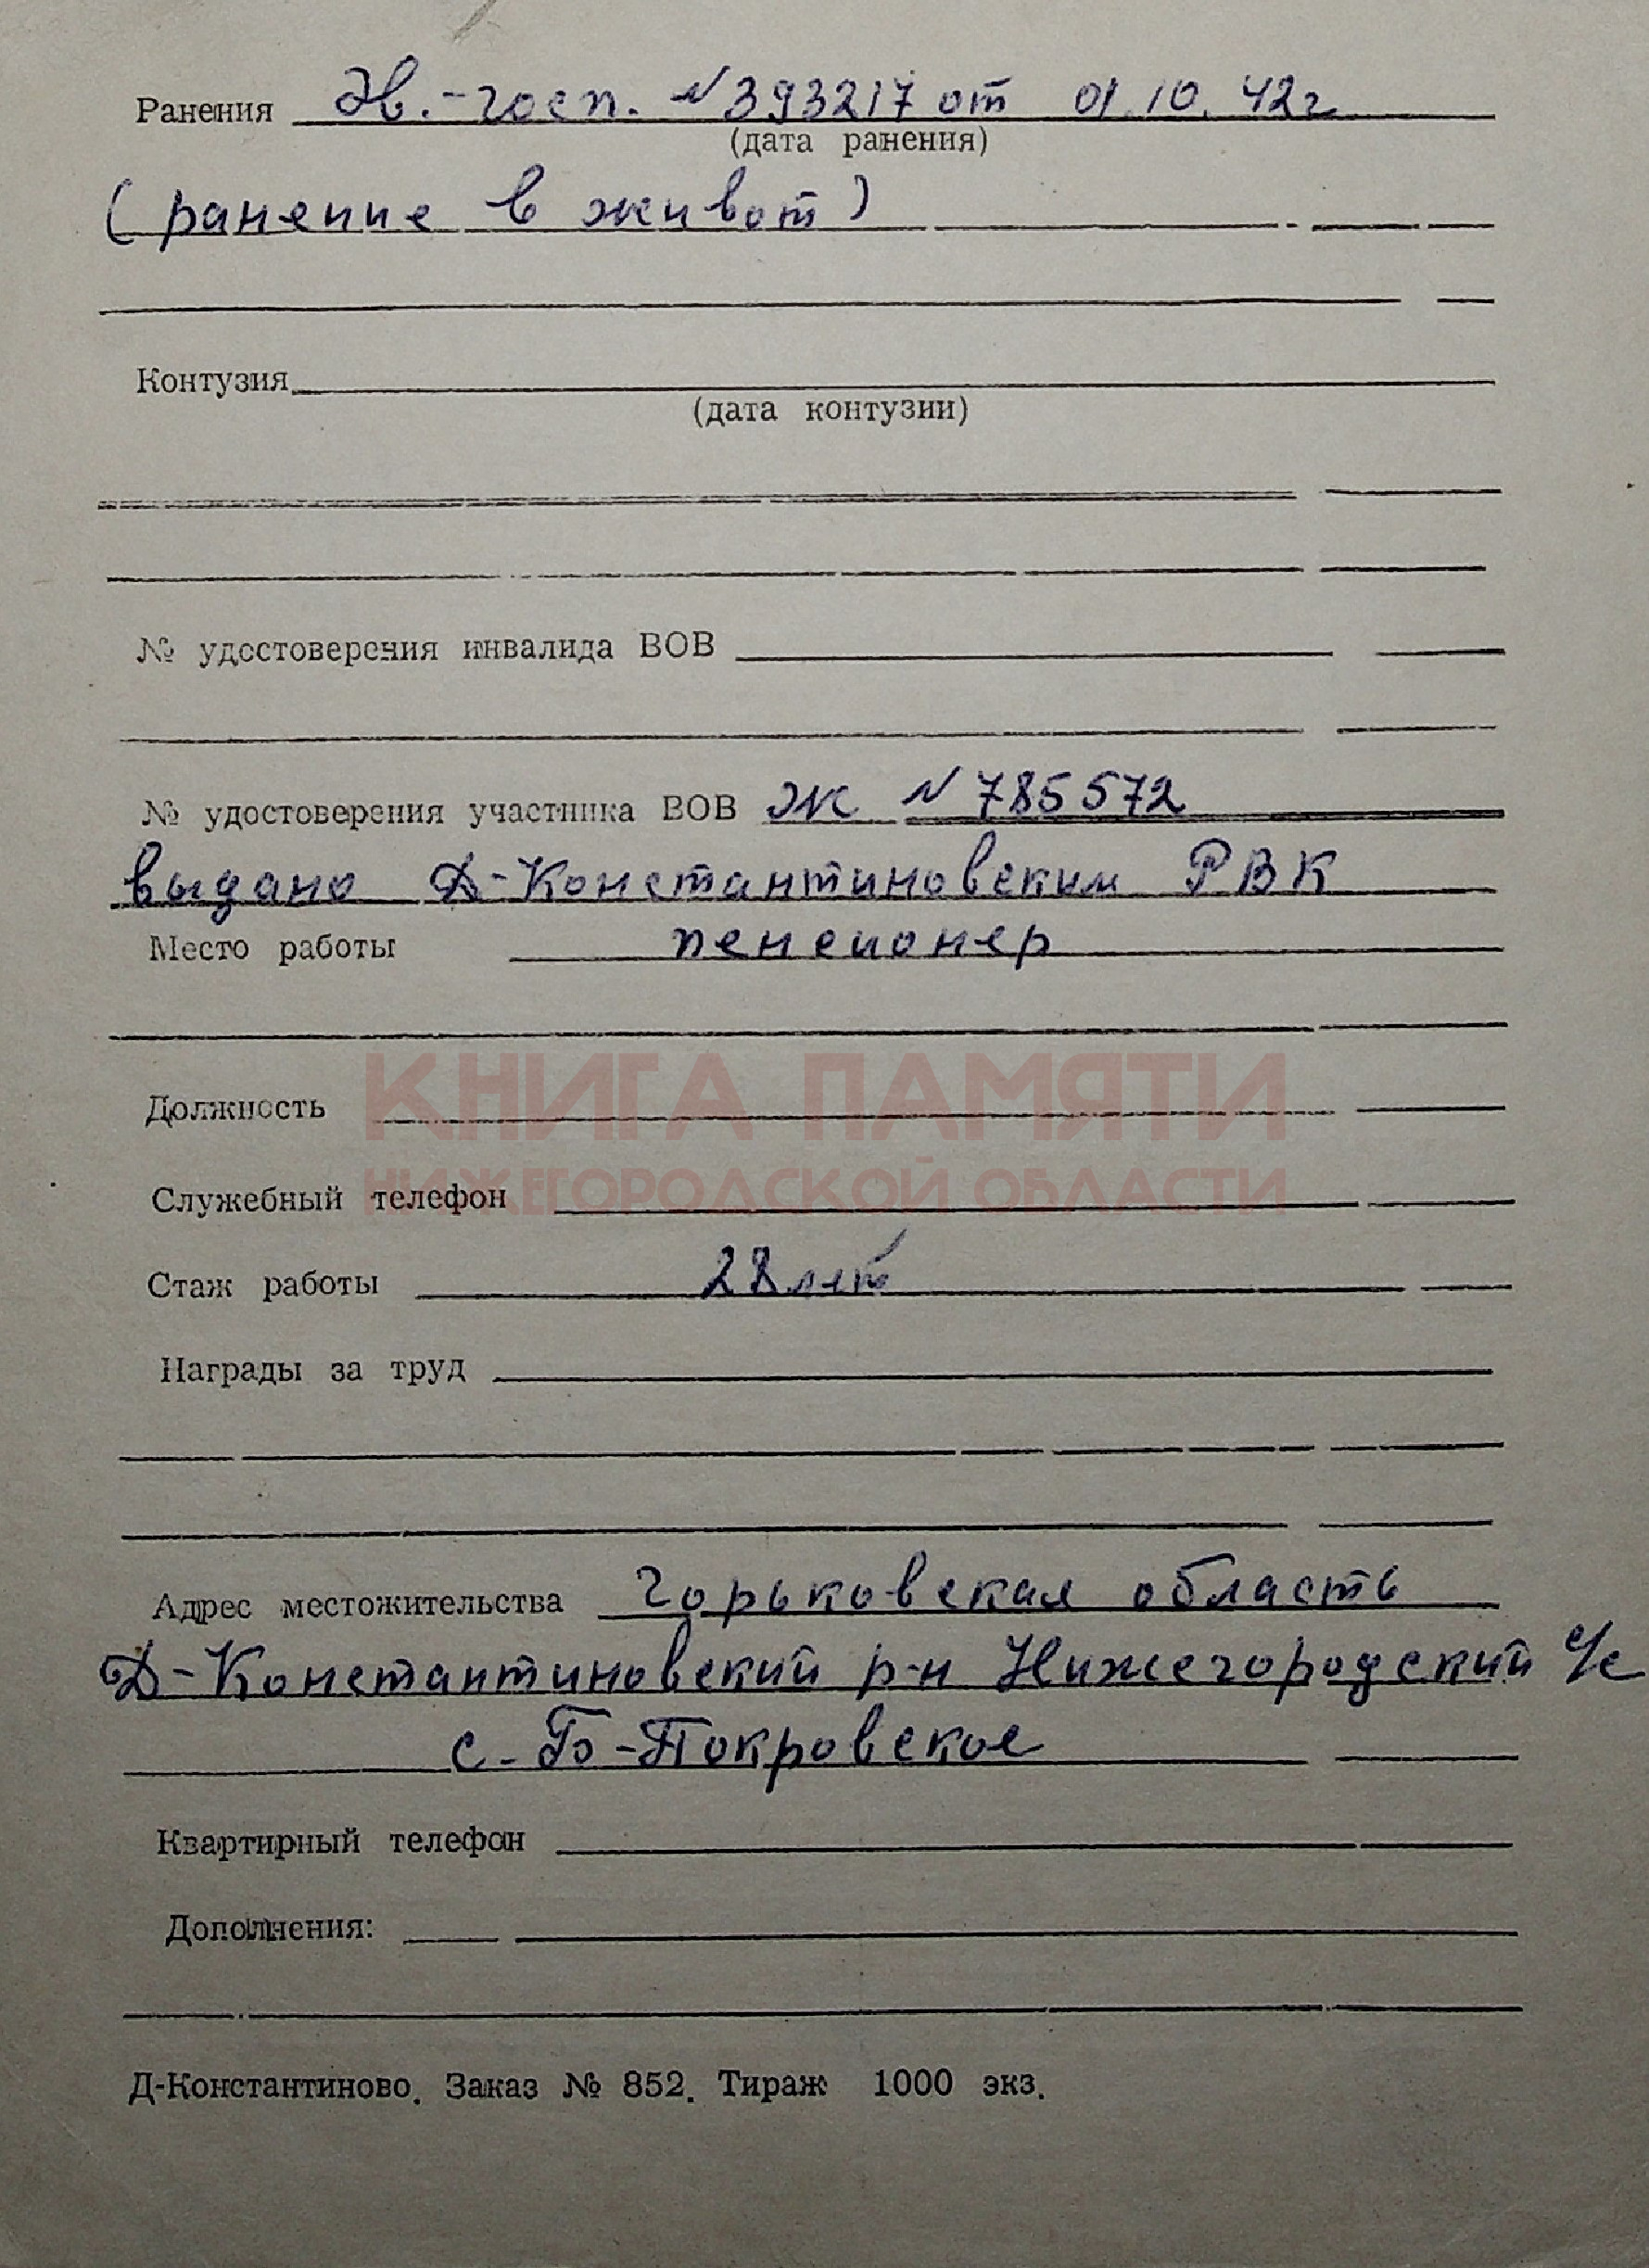 Ранения Эв.-госп. №393217 от 01.10.42г
(дата ранения)
(ранение в живот)
Контузия
(дата контузии)
№ удостоверения инвалида ВОВ
№ удостоверения участника ВОВ Ж №785572
выдано Д-Константиновским РВК
Место работы пенсионер
КНИГА ПАМЯТИ
Должность
НИЖЕГОРОДСКОЙ ОБЛАСТИ
Служебный телефон
Стаж работы 28 лет
Награды за труд
Адрес местожительства Горьковская область
Д-Константиновский р-н Нижегородский с/с
с. Б-Покровское
Квартирный телефон
Дополнения:
Д-Константиново. Заказ № 852. Тираж 1000 экз.